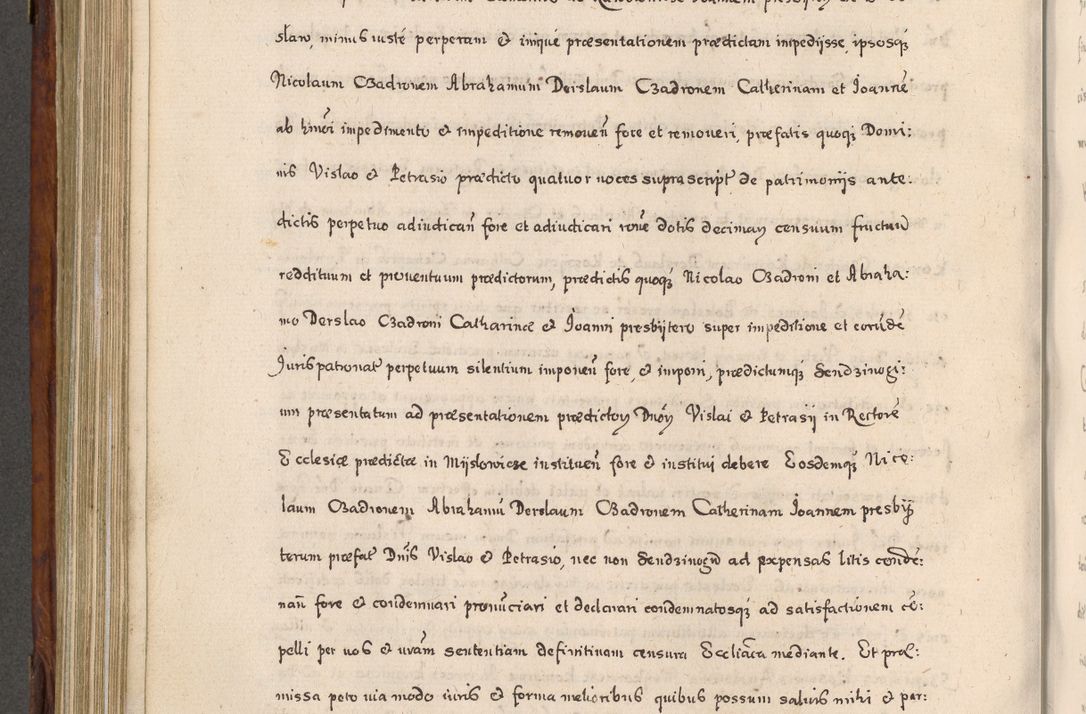 slaw, minus iusté perperam & iniquè præsentationem prædictam impedijsse, ipsosq₃
Nicolaum Czadronem Abrahamum Derslaum Czadronem Catherinam et Joannē
ab hm̄oi impedimento & impeditione removeñ fore et removeri, præfatis quoq₃ Domi:
nis Vislao & Petrasio prædicto quatuor voces suprascript de patrimonijs ante:
dictis perpetuo adiudicañ fore et adiudicari rōne dotis decimaꝝ censuum fructuū
reddituum et proventuum prædictorum, prædictis quoq₃ Nicolao Czadroni et Abraha:
mo Derslao Czadroni Catharinæ & Joanni presbijtero super impeditione et eorūdē
Jurispatronat perpetuum silentium imponeñ fore, & imponi, prædictumq₃ Sendzinogi:
um præsentatum ad præsentationem prædictoꝝ Dnōꝝ Vislai & Petrasij in Rectorē
Ecclesiæ prædictæ in Mijslowicze institueñ fore & institui debere Eosdemq₃ Nico:
laum Czadronem Abrahamū Derslaum Czadronem Catherinam Joannem presbij:
terum præfat Dnīs Vislao & Petrasio, nec non Sendzinogio ad expensas litis condē:
nañ fore & condemnari pronūciari et declarari condemnatosq₃ ad satisfactionem cō:
pelli per vos & vrām sententiam definitivam censura Ecclīāca mediante. Et præ:
missa peto via modo iuris & forma melioribus quibus possum salvis mihi & par: